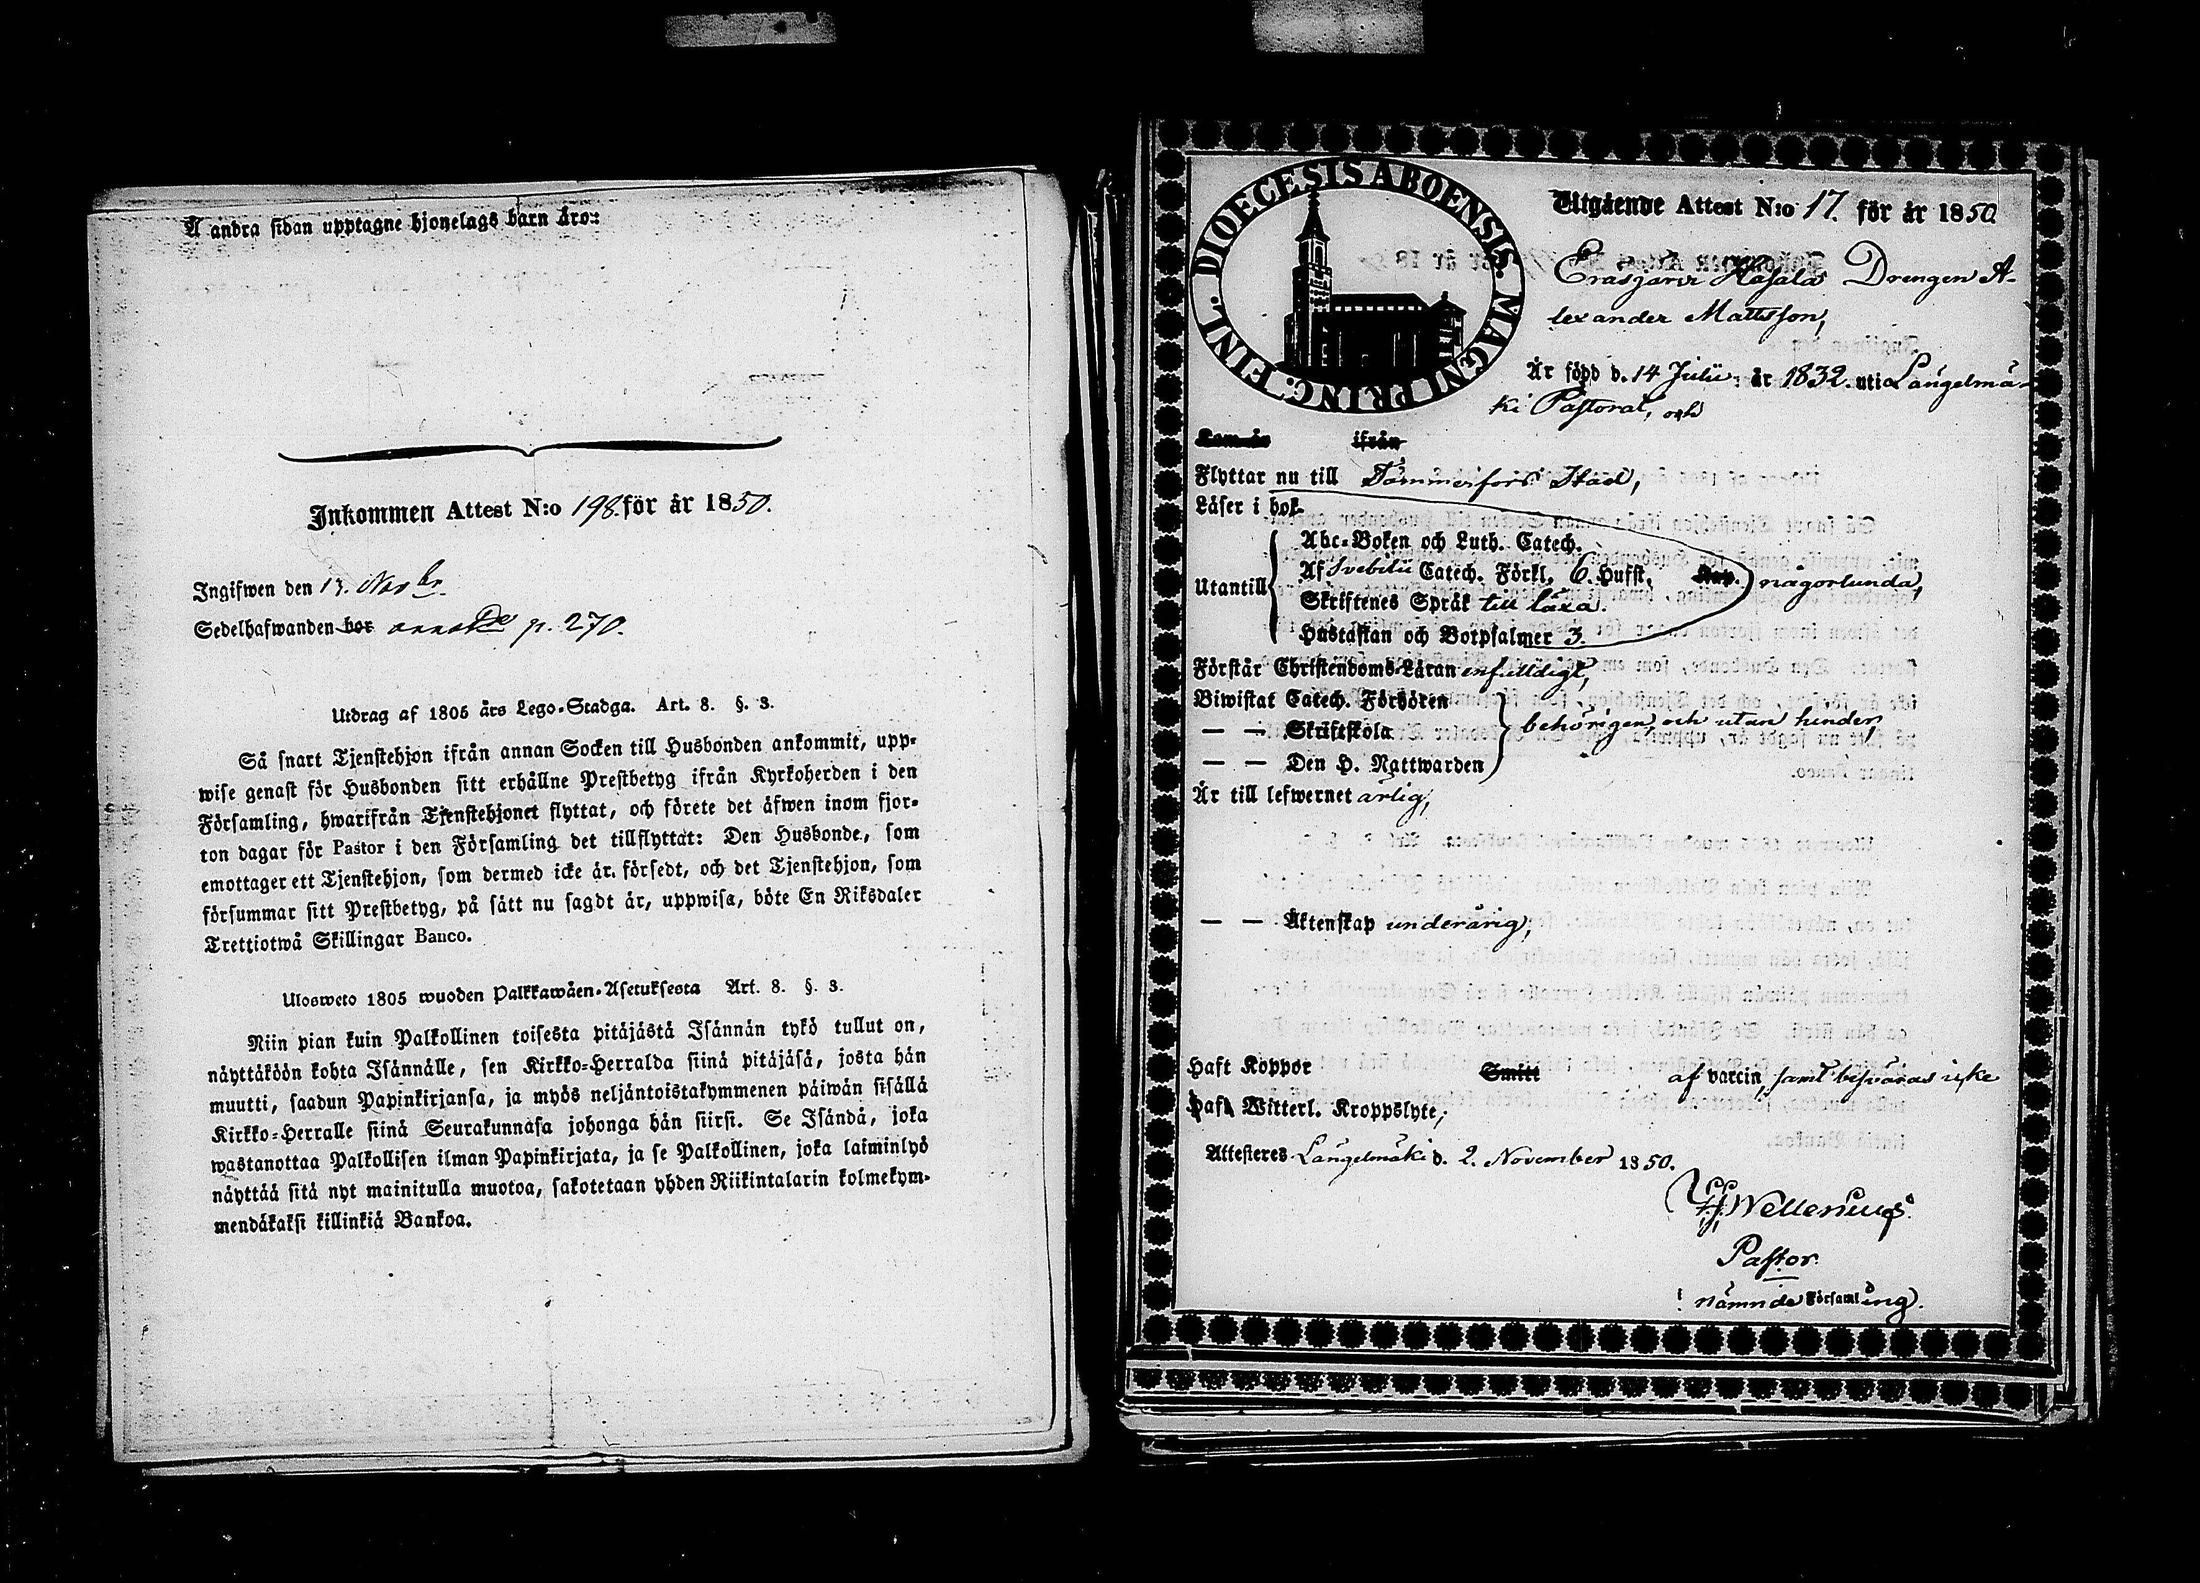 Å andra sidan upptagne hjonelags barn äro:
Inkommen Attest N:o 198. för år 1850.
Ingifwen den 13. Novbr.
Sedelhafwanden bor p. 270.
Utdrag af 1805 års Lego-Stadga. Art. 8. §. 3.
Så snart Tjenstehjon ifrån annan Socken till Husbonden ankommit, upp-
wise genast för Husbonden sitt erhållne Prestbetyg ifrån Kyrkoherden i den
Församling, hwarifrån Tjenstehjonet flyttat, och förete det äfwen inom fjor-
ton dagar för Pastor i den Församling det tillflyttat: Den Husbonde, som
emottager ett Tjenstehjon, som dermed icke är försedt, och det Tjenstehjon, som
försummar sitt Prestbetyg, på sätt nu sagdt är, uppwisa, böte En Riksdaler
Trettiotwå Skillingar Banco.
Ulosweto 1805 wuoden Palkkawäen-Asetuksesta Art. 8. §. 3.
Niin pian kuin Palkollinen toisesta pitäjästä Isännän tykö tullut on,
näyttäköön kohta Isännälle, sen Kirkko-Herralda siinä pitäjäsä, josta hän
muutti, saadun Papinkirjansa, ja myös neljäntoistakymmenen päiwän sisällä
Kirkko-Herralle siinä Seurakunnasa johonga hän siirsi. Se Isändä, joka
wastanottaa Palkollisen ilman Papinkirjata, ja se Palkollinen, joka laiminlyö
näyttää sitä nyt mainitulla muotoa, sakotetaan yhden Riikintalarin kolmekym-
mendäkaksi killinkiä Bankoa.
DIOECESIS ABOENSIS. MAGNI PRINC. FINL.
Utgående Attest N:o 17. för år 1850
Erasjärvi Hasala Drengen A-
lexander Mattsson,
Är född d. 14 Julii år 1832. uti Längelmä-
ki Pastorat, och
Kom år ifrån
Flyttar nu till Tammerfors Stad,
Läser i bok.
Abc-Boken och Luth. Catech.
Utantill Af Svebilii Catech. Förkl. 6. Hufst. Kap. någorlunda,
Skriftenes Språk till läxa.
Hustaflan och Botpsalmer 3.
Förstår Christendoms-Läran enfulldigt,
Biwistat Catech. Förhören
— — Skriftskola behörigen, och utan hinder,
— — Den H. Nattwarden
Är till lefwernet ärlig,
— — Äktenskap underårig,
Haft Koppor Smitt af vaccin, samt besväras icke
af Witterl. Kroppslyte;
Attesteres Längelmäki d. 2. November 1850.
Wellenius
Pastor
i nämnde Församling.